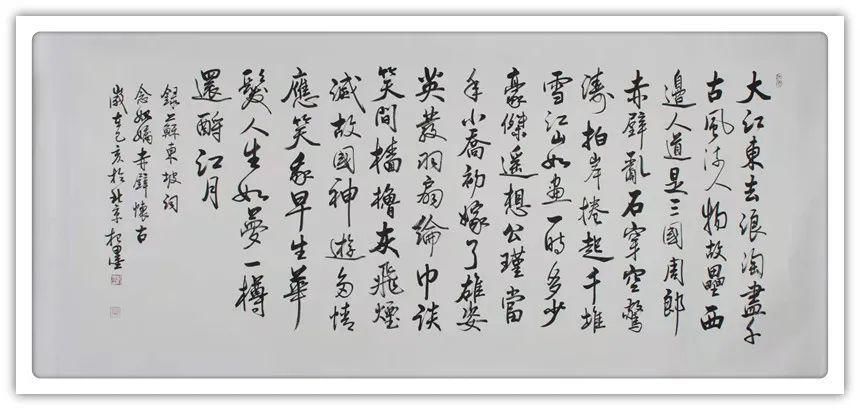 大江東去浪淘盡千
古風流人物故壘西
邊人道是三國周郎
赤壁亂石穿空驚
濤拍岸捲起千堆
雪江山如畫一時多少
豪傑遙想公瑾當
年小喬初嫁了雄姿
英發羽扇綸巾談
笑間檣櫓灰飛煙
滅故國神遊多情
應笑我早生華
髮人生如夢一樽
還酹江月
錄蘇東坡詞
念奴嬌赤壁懷古
歲在己亥於北京